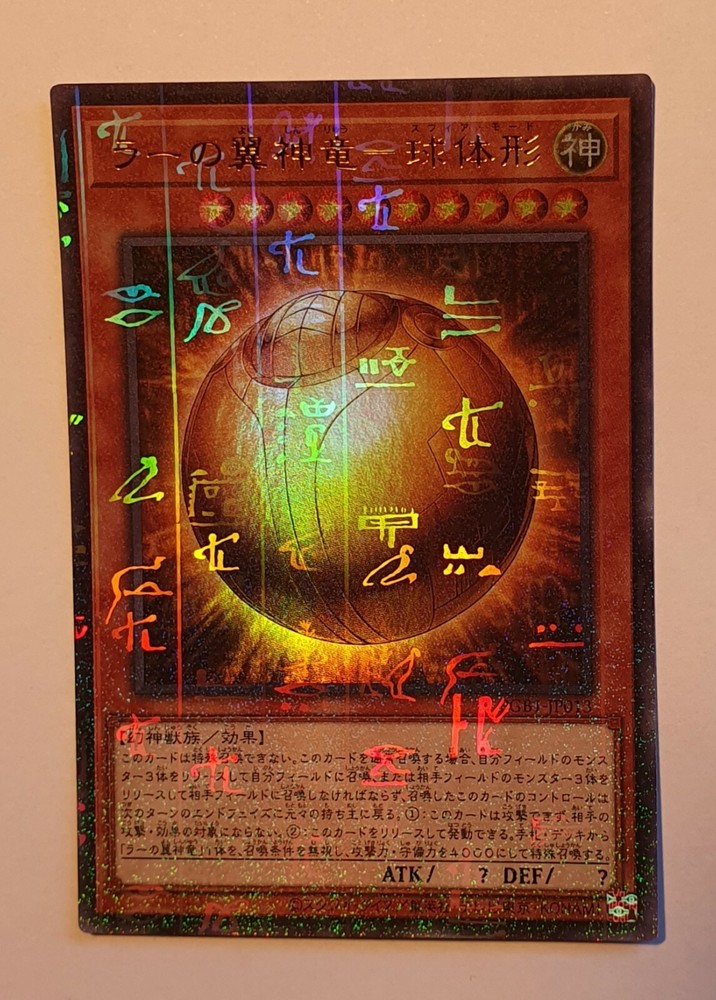 ラーの翼神竜－球体形
よく しん りゅう スフィア モード
神
かみ
GB1-JP013
【幻神獣族／効果】
このカードは特殊召喚できない。このカードを通常召喚する場合、自分フィールドのモンス
ター３体をリリースして自分フィールドに召喚、または相手フィールドのモンスター３体を
リリースして相手フィールドに召喚しなければならず、召喚したこのカードのコントロールは
次のターンのエンドフェイズに元々の持ち主に戻る。①：このカードは攻撃できず、相手の
攻撃・効果の対象にならない。②：このカードをリリースして発動できる。手札・デッキから
「ラーの翼神竜」１体を、召喚条件を無視し、攻撃力・守備力を４０００にして特殊召喚する。
ATK/ ? DEF/ ?
©スタジオ・ダイス／集英社・テレビ東京・KONAMI